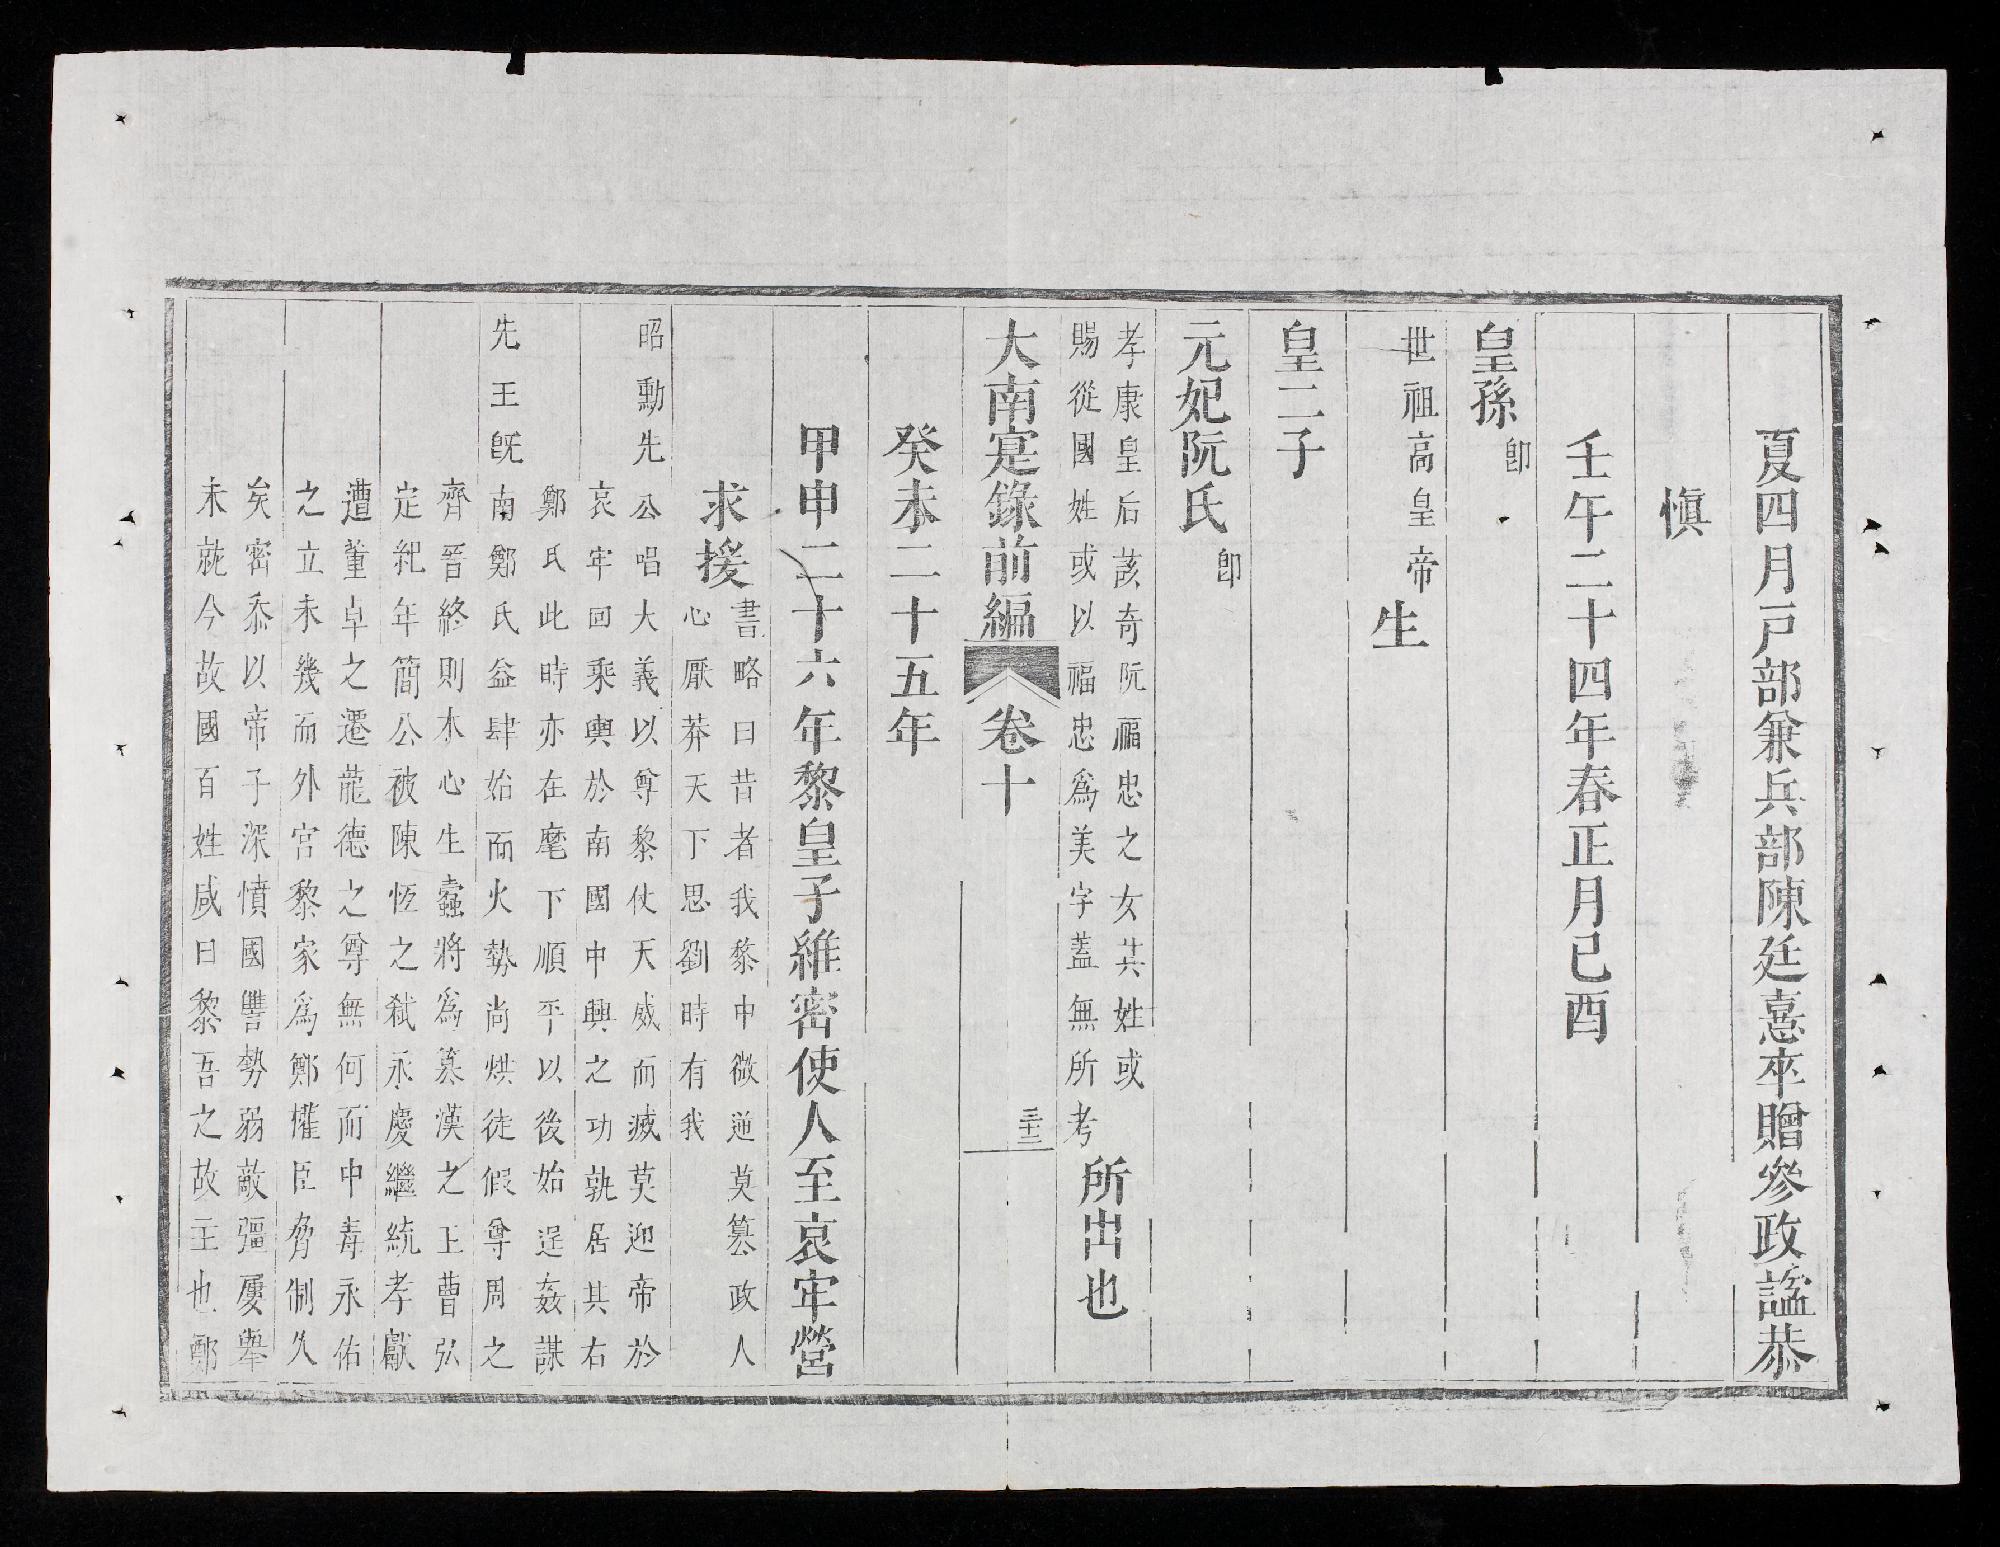 夏四月戸部兼兵部陳廷憙卒贈參政諡恭
愼
壬午二十四年春正月己酉
皇孫卽
世祖高皇帝生
皇二子
元妃阮氏卽
孝康皇后該奇阮福忠之女其姓或
賜從國姓或以福忠爲美字蓋無所考
所出也
大南寔錄前編 卷十 三十二
癸未二十五年
甲申二十六年黎皇子維密使人至哀牢營
求援
書略曰昔者我黎中微逆莫簒政人
心厭莽天下思劉時有我
昭勳先公唱大義以尊黎仗天威而滅莫迎帝於
哀牢回乘輿於南國中興之功孰居其右
鄭氏此時亦在麾下順平以後始逞姦謀
先王旣南鄭氏益肆始而火勢尚烘徒假尊周之
齊晉終則木心生蠹將爲簒漢之王曹弘
定紀年簡公被陳恆之弒永慶繼統孝獻
遭董卓之遷龍德之尊無何而中毒永佑
之立未幾而外宮黎家爲鄭權臣脅制久
矣密忝以帝子深憤國讐勢弱敵彊屢舉
未就今故國百姓咸曰黎吾之故主也鄭